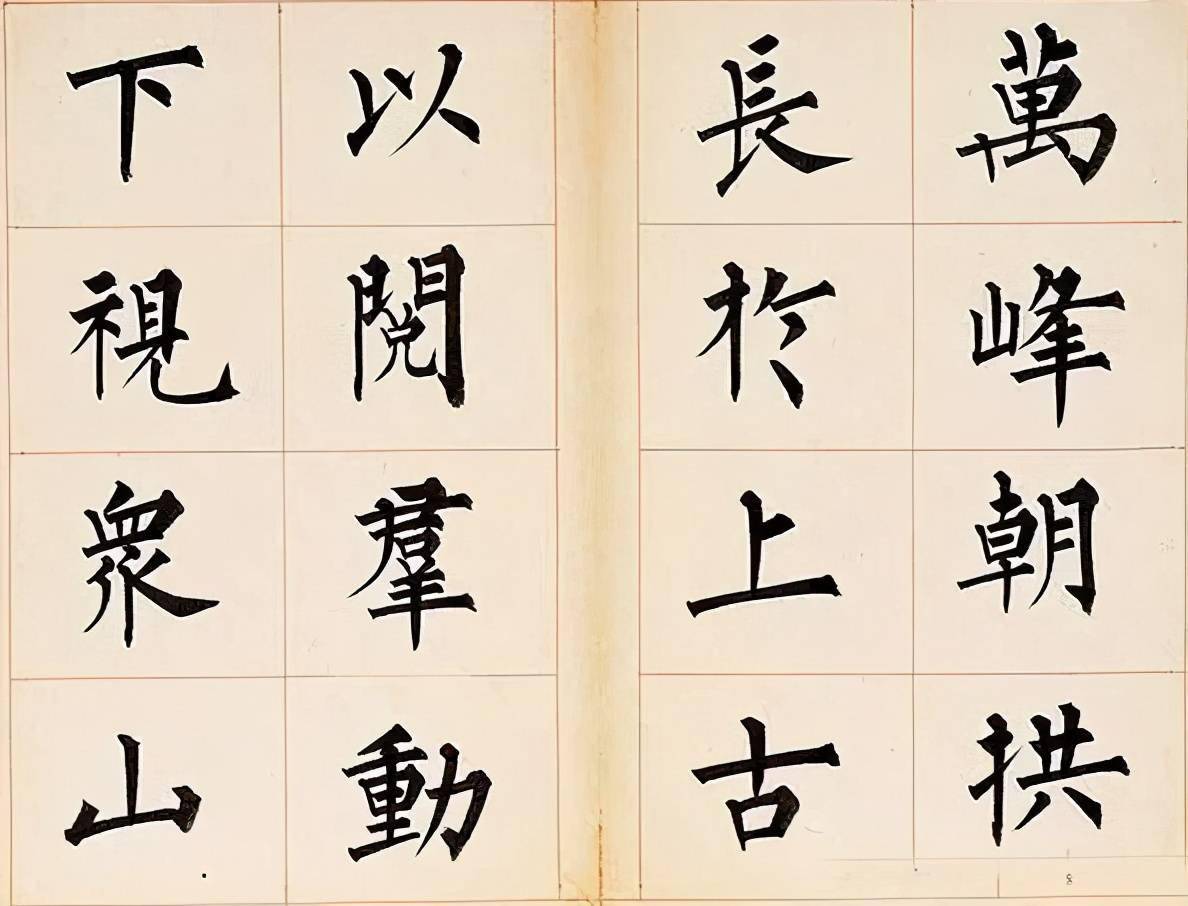 萬峰朝拱
長於上古
以閱羣動
下視衆山
8